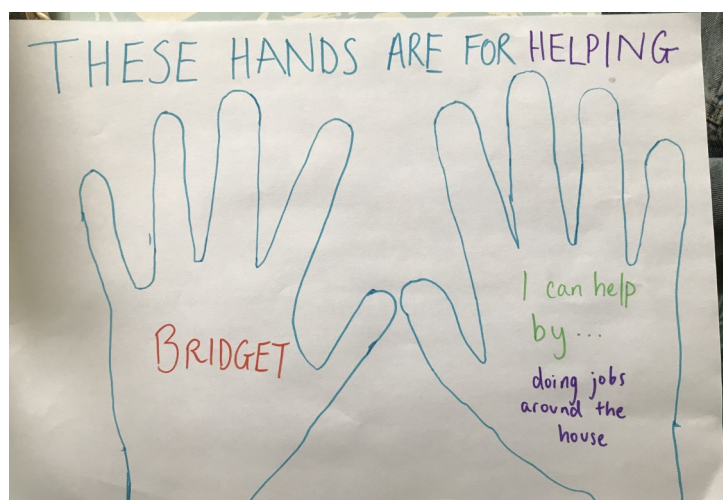 THESE HANDS ARE FOR HELPING
BRIDGET
I can help
by...
doing jobs
around the
house